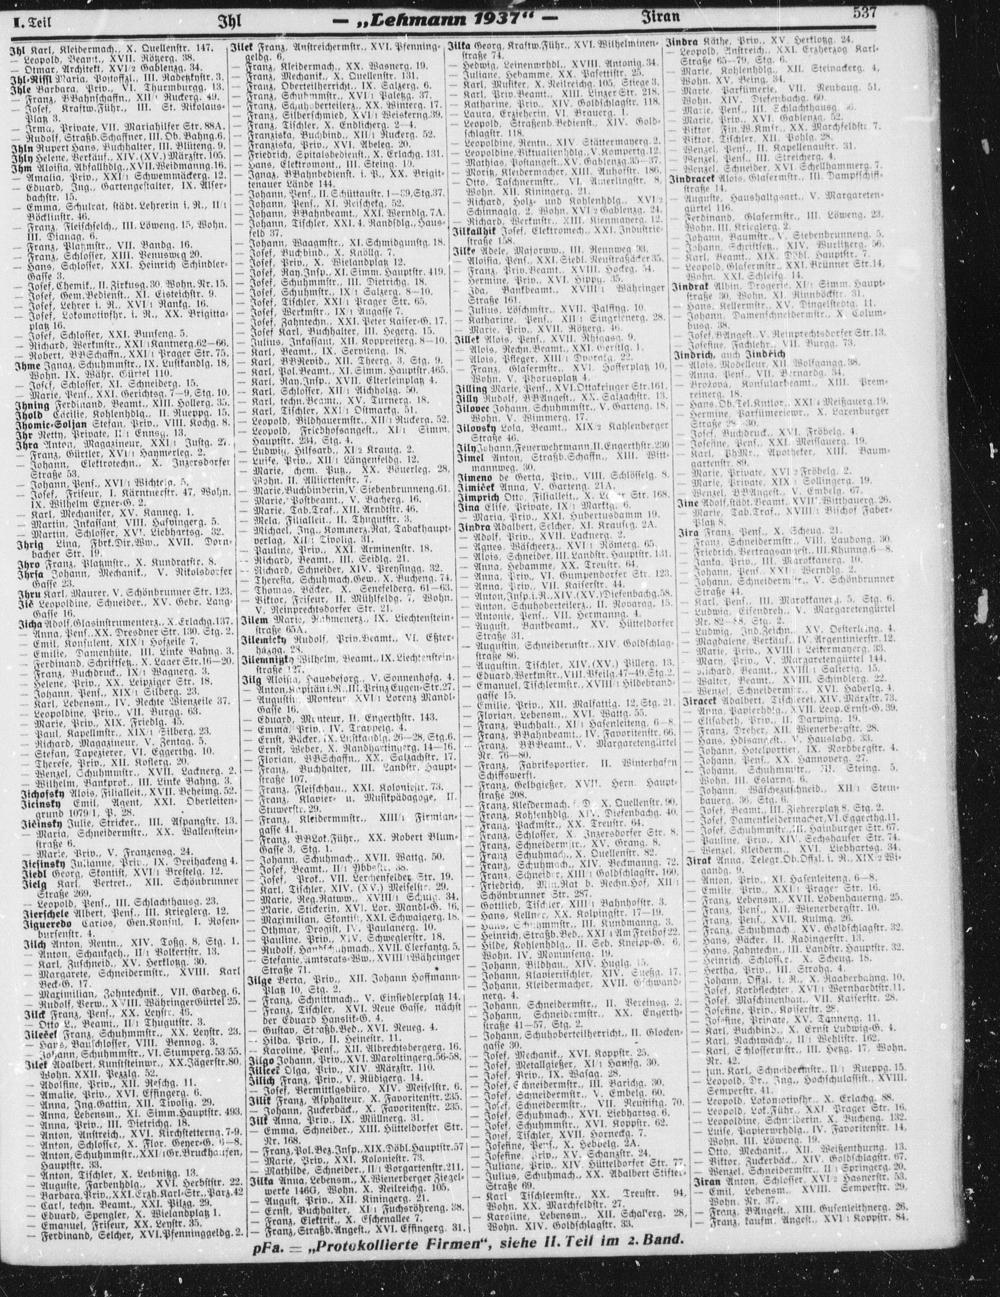 I. Teil
Ihl
— „Lehmann 1937“ —
Jiran
537
Ihl Karl, Kleidermach., X. Quellenstr. 147.
— Leopold, Beamt., XVII. Rötzerg. 38.
— Otmar, Architekt, XVI/2 Gablenzg. 34.
Ihl-Riffl Maria, Postoffzl., III. Radetzkystr. 3.
Ihle Barbara, Priv., VI. Thurmburgg. 13.
— Josef, Kraftw.Führ., III. St. Nikolaus-
Platz 3.
— Irma, Private, VII. Mariahilfer Str. 88A.
— Rudolf, Straßb.Schaffner, III. Ob. Bahng. 6.
Ihln Rupert Hans, Buchhalter, III. Blüteng. 9.
— Amalia, Priv., XXI/1 Schwemmäckerg. 12.
— Eduard, Ing., Gartengestalter, IX. Alser-
bachstr. 15.
— Emma, Schulrat, städt. Lehrerin i. R., II/1
Böcklinstr. 46.
— Franz, Fleischselch., III. Löweng. 15, Wohn.
III. Dianag. 6.
— Franz, Platzmstr., VII. Bandg. 16.
— Franz, Schlosser, XIII. Penniweg 20.
— Hans, Schlosser, XXI. Heinrich Schindler-
Gasse 3.
— Josef, Chemik., II. Zirkusg. 30, Wohn. Nr. 15.
— Josef, Gem.Bedienst., XI. Eisteichstr. 9.
— Josef, Lehrer i. R., XVI/1 Rankg. 16.
— Josef, Lokomotivfhr. i. R., XX. Brigitta-
platz 16.
— Josef, Schlosser, XXI. Bunseng. 5.
— Richard, Werkmstr., XXI/1 Kantnerg. 62—66.
— Robert, BBSchaffn., XXI/1 Prager Str. 75.
Ihme Ignaz, Schuhmmstr., IX. Lustkandlg. 18,
Wohn. IX. Währ. Gürtel 110.
— Josef, Schlosser, XI. Schneiderg. 15.
— Marie, Pens., XXI. Gerichtsg. 7—9, Stg. 10.
Ihning Ferdinand, Beamt., XIII. Hollerg. 35.
Ihold Cecilie, Kohlenhdlg., II. Rueppg. 15.
Ihomic-Soljan Stefan, Priv., VIII. Kochg. 8.
Ihr Netty, Private, II/1 Emsg. 13.
Ihra Anton, Magazineur, XXI/1 Justg. 27.
— Franz, Gürtler, XVI/1 Haymerleg. 2.
— Johann, Elektrotechn., X. Inzersdorfer
Straße 53.
— Josef, Friseur, I. Kärntnerstr. 47, Wohn.
IX. Wilhelm Exner-G. 2.
— Karl, Mechaniker, XV. Ranneg. 1.
— Martin, Inkassant, VIII. Hasvingerg. 5.
— Martin, Schlosser, XV. Liebhartsg. 52.
Ihrig Lina, Fbrt.Dir.Ww., XVII. Dorn-
bacher Str. 19.
Ihro Franz, Platzmstr., X. Kundratstr. 8.
Ihrja Johann, Mechanik., V. Nikolsdorfer
Gasse 23.
Ihru Karl, Maurer, V. Schönbrunner Str. 123.
Jic Leopoldine, Schneider., XV. Gebr. Lang-
Gasse 16.
— Anna, Pens., XX. Dresdner Str. 130, Stg. 2.
— Emil, Konsulent, XIX/1 Hofzeile 7.
— Emilie, Damenhüte, III. Linke Bahng. 3.
— Ferdinand, Schriftsetz., X. Laaer Str. 16—20.
— Franz, Buchdruck., IX/1 Wagnerg. 3.
— Helene, Priv., XX. Leipziger Str. 18.
— Johann, Pens., XIX/1 Silberg. 23.
— Karl, Lebensm., IV. Rechte Wienzeile 37.
— Leopoldine, Priv., VII. Burgg. 63.
— Marie, Priv., XIX. Friedlg. 45.
— Paul, Kapellmstr., XIX/1 Silberg. 23.
— Richard, Magazineur, V. Zentag. 5.
— Stefan, Tapezierer, I. Eggerthg. 10.
— Therese, Priv., XII. Koflerg. 20.
— Wenzel, Schuhmmstr., XVII. Lacknerg. 2.
— Wilhelm, Bankprok., III. Linke Bahng. 3.
Jichofsky Alois, Filialleit., XVII. Beheimg. 52.
Jicinsky Emil, Agent, XXI. Oberleiten-
grund 1079/1, P. 28.
Jičinsky Julie, Stricker., III. Aspangstr. 13.
— Maria, Schneidermstr., XX. Wallenstein-
straße 6.
— Marie, Priv., V. Franzensg. 24.
Jicsinsky Julianne, Priv., IX. Dreihackeng. 4.
Jiedl Georg, Stanist, XVI/1 Brestelg. 12.
Jielg Karl, Vertret., XII. Schönbrunner
Straße 269.
— Leopold, Pens., III. Schlachthausg. 23.
Jierschele Albert, Pens., III. Krieglerg. 12.
Jigueredo Carlos, Gen.Konsul, I. Rosen-
bursenstr. 4.
Jilch Anton, Rentn., XIV. Toßg. 8, Stg. 1.
— Anton, Schankgeh., II/1 Volkertstr. 13.
— Karl, Zuschneid., XV. Herklotzg. 30.
— Margarete, Schneidermstr., XVIII. Karl
Beck-G. 17.
— Maximilian, Zahntechnik., VII. Gardeg. 6.
— Rudolf, Verw., XVIII. Währinger Gürtel 25.
Jilck Franz, Pens., XX. Leystr. 46.
— Otto L., Beamt., II/1 Thugutstr. 3.
Jilecek Franz, Schuhmmstr., XX. Leystr. 23.
— Hans, Bauschlosser, VIII. Bennog. 3.
— Johann, Schuhmmstr., VI. Stumperg. 53/55.
Jilek Adalbert, Kunststeinwr., XX. Jägerstr. 80,
Wohn. XXII. Pezalg. 52.
— Adolfine, Priv., XII. Reschg. 11.
— Amalie, Priv., XVI. Effingerg. 6.
— Anna, Ing.Gattin, XII. Tivolig. 29.
— Anna, Lebensm., XI. Simm.Hauptstr. 493.
— Anna, Priv., III. Dietrichg. 18.
— Anton, Anstreich., XVI. Kirchstetterng. 7-9.
— Anton, Schlosser, X. Flor. Geyer-G. 6—8.
— Anton, Schuhmmstr., XXI/1 Gr. Bruckhausen,
Hauptstr. 33.
— Anton, Tischler, X. Leibnitzg. 13.
— Auguste, Farbenhdlg., XVI. Herbststr. 22.
— Barbara, Priv., XXI. Erzh. Karl-Str., Parz. 42
— Carl, techn. Beamt., XXI. Bilzg. 29.
— Eduard, Spengler, X. Wielandplatz 1.
— Emanuel, Friseur, XX. Leystr. 35.
— Ferdinand, Selcher, XVI. Pfenninggeldg. 2.
Jilek Franz, Anstreichermstr., XVI. Pfenning-
geldg. 6.
— Franz, Kleidermach., XX. Wasnerg. 19.
— Franz, Mechanik., X. Quellenstr. 131.
— Franz, Oberteilherricht., IX. Sailerg. 2.
— Franz, Schuhmmstr., XVI/1 Paletzg. 37.
— Franz, Schuhoberteilerz., XX. Winterg. 17.
— Franz, Silberschmied, XVI/1 Weiskerng. 39.
— Franz, Tischler, X. Endlicherg. 2—4.
— Franziska, Buchbind., XII/1 Ruckerg. 52.
— Franziska, Priv., XVI. Abeleg. 20.
— Friedrich, Spitalsbedienst., X. Erlachg. 131.
— Hans, Elektromont., III. Steing. 19.
— Ignaz, BBahnbedienst. i. P., XX. Brigit-
tenauer Lände 144.
— Johann, Pens., II. Schüttaustr. 1—39, Stg. 37.
— Johann, Pens., XI. Reischekg. 52.
— Johann, BBahnbeamt., XXI. Werndlg. 7A.
— Johann, Tischler, XXI. 4. Randsdlg., Haus-
feld 37.
— Johann, Waagmstr., XI. Schmidgunstg. 18.
— Josef, Buchbind., X. Knöllg. 7.
— Josef, Priv., X. Wielandplatz 12.
— Josef, Ray.Insp., XI. Simm. Hauptstr. 419.
— Josef, Schuhmmstr., III. Dietrichg. 18.
— Josef, Schuhmstr., IX/1 Salzerg. 8—10.
— Josef, Tischler, XXI/1 Prager Str. 65.
— Josef, Werkmstr., IX/1 Augasse 7.
— Josef, Zahntechn., XXI. Peter Kaiser-G. 17.
— Josef Karl, Buchhalter, III. Hegerg. 15.
— Julius, Inkassant, XII. Koppreiterg. 8—10.
— Karl, Beamt., IX. Serviteng. 18.
— Karl, BBRevid., XII. Theerg. 3, Stg. 9.
— Karl, Pol.Beamt., XI. Simm. Hauptstr. 465.
— Karl, Ray.Insp., XVII. Elterleinplatz 4.
— Karl, Schlosser, XII/1 Aichholzg. 50.
— Karl, techn. Beamt., XV. Turnerg. 18.
— Karl, Tischler, XXI/1 Ostmarkg. 51.
— Leopold, Bildhauermstr., XII/1 Ruckerg. 52.
— Leopold, Friedhofsangest., XI/1 Simm.
Hauptstr. 234, Stg. 4.
— Ludwig, Hilfsarb., XI/2 Krausg. 2.
— Luise, Priv., III. Längenfeldg. 12.
— Marie, chem. Putz., XX. Bäuerleg. 28,
Wohn. II. Alliiertenstr. 7.
— Marie, Buchbinderin, V. Siebenbrunneng. 61.
— Marie, Postbeamt., V. Bacherg. 16.
— Marie, Tab.Traf., XII. Arndtstr. 46.
— Mela, Filialleit., II. Thugutstr. 3.
— Michael, Ing., Kommerz.Rat, Tabakhaupt-
verlag, XII/1 Tivolig. 31.
— Pauline, Priv., XXI. Arminenstr. 18.
— Richard, Beamt., III. Seidlg. 21.
— Richard, Schneider, XIV. Preysingg. 32.
— Theresia, Schuhmach.Gew., X. Bucheng. 74.
— Thomas, Bäcker, X. Senefelderg. 61—63.
— Viktor, Friseur, II. Mühlfeldg. 7, Wohn.
V. Reinprechtsdorfer Str. 21.
Jilem Marie, Rahmenerz., IX. Liechtenstein-
straße 65A.
Jilemicky Rudolf, Priv.Beamt., VI. Eszter-
házyg. 28.
Jilemnizky Wilhelm, Beamt., IX. Liechtenstein-
straße 127.
Jilg Aloisia, Hausbesorg., V. Sonnenhofg. 4.
— Anton, Kapitän i. R., III. Prinz Eugen-Str. 27.
— August, Monteur, XVI/1 Lorenz Mandl-
Gasse 16.
— Eduard, Monteur, II. Engerthstr. 143.
— Emma, Priv., IV. Trappelg. 4.
— Ernst, Bäcker, IX. Lustkandlg. 26—28, Stg. 6.
— Ernst, Weber, X. Randhartingerg. 14—16.
— Florian, BBSchaffn., XX. Salzachstr. 17.
— Franz, Buchhalter, III. Landstr. Haupt-
straße 107.
— Franz, Fleischhau., XXI. Koloniestr. 73.
— Franz, Klavier- u. Musikpädagoge, II.
Stuwerstr. 29.
— Franz, Kleidermmstr., XIII/1 Firmian-
gasse 41.
— Franz, BBLok.Führ., XX. Robert Blum-
Gasse 3, Stg. 1.
— Johann, Schuhmach., XVII. Wattg. 50.
— Josef, Prok., VII. Lerchenfelder Str. 19.
— Karl, Tischler, XIV. (XV.) Meiselstr. 29.
— Marie, Reg.Ratww., XVIII/1 Schulg. 34.
— Marie, Stickerin, XVI. Lor. Mandl-G. 16.
— Maximilian, Stanist, XXI. Schwaigerg. 18.
— Othmar, Drogist, IV. Paulanerg. 10.
— Pauline, Priv., XIV. Schweglerstr. 18.
— Rudolf, Handschuhmach., XVII. Elterfantg. 5.
— Stefanie, Amtsrats-Ww., XVIII/1 Währinger
Straße 71.
Jilge Berta, Priv., XII. Johann Hoffmann-
Platz 10, Stg. 2.
— Franz, Schnittmach., V. Einsiedlerplatz 14.
— Franz, Tischler, XVI. Neue Gasse, nächst
der Eduard Hanslik-G. 4.
— Gustav, Straßb.Bed., XVI. Neueg. 4.
— Hilda, Priv., II. Heinestr. 11.
— Karoline, Pens., XII. Albrechtsbergerg. 16.
Jilgo Johann, Priv., XVI. Maroltingerg. 56-58.
Jilicei Olga, Priv., XIV. Märzstr. 110.
Jilich Franz, Priv., V. Rüdigerg. 14.
— Josef, Vermittlgsbüro, XIV. Meiselstr. 6.
Jilik Franz, Asphalteur, X. Favoritenstr. 235.
— Johann, Zuckerbäck., X. Favoritenstr. 235.
Jilk Anna, Priv., IX. Müllnerg. 31.
— Emma, Schneider., XIII. Hütteldorfer Str.
Nr. 168.
— Franz, Pol.Bez.Insp., XIX. Döbl.Hauptstr. 57
— Marie, Priv., XXI. Koloniestr. 73.
— Mathilde, Schneider., II/1 Vorgartenstr. 211.
Jilka Anna, Lebensm., X. Wienerberger Ziegel-
werke 146G, Wohn. X. Neilreichg. 105.
— August, Priv., XII. Kiningerg. 21.
— Ernst, Buchhalter, XI/1 Fuchsröhreng. 38.
— Franz, Elektrik., X. Eschenallee 7.
— Franz, Straßb.Angest., XVI. Effingerg. 31.
Jilka Georg, Kraftw.Führ., XVI. Wilhelminen-
straße 74.
— Hedwig, Leinenwrhdl., XVIII. Antonig. 34.
— Juliane, Hebamme, XX. Pasettistr. 25.
— Karl, Musiker, X. Neilreichg. 105, Stiege 3.
— Karl, Priv.Beamt., XIII. Linzer Str. 218.
— Katharine, Priv., XIV. Goldschlagstr. 118.
— Laura, Erzieherin, VI. Brauerg. 1.
— Leopold, Straßenb.Bedienst., XIV. Gold-
schlagstr. 118.
— Leopoldine, Rentn., XIV. Stättermayerg. 2.
— Leopoldine, Viktualienhdlg., V. Kompertg. 12.
— Mathias, Postangest., XV. Gablenzg. 35—37.
— Moritz, Kleidermacher, XIII. Auhofstr. 186.
— Otto, Taschnermstr., VI. Amerlingstr. 8,
Wohn. XII. Kiningerg. 21.
— Richard, Holz- und Kohlenhdlg., XVI/2
Schinnaglg. 2, Wohn. XVI/2 Gablenzg. 24.
— Richard, Werkmstr., XIII. Kienmayerg. 12.
Jilkalhit Josef, Elektromech., XXI. Industrie-
straße 158.
Jilke Adele, Majorww., III. Rennweg 33.
— Aloisia, Pens., XXI. Siedl. Neustraßäcker 35.
— Franz, Priv.Beamt., XVIII. Hockeg. 54.
— Hermine, Priv., XVII. Hippg. 35.
— Ida, Bankbeamt., XVIII/1 Währinger
Straße 161.
— Julius, Löschmstr., XVII. Palffyg. 10.
— Katharine, Pens., XII/1 Singrienerg. 28.
— Marie, Priv., XVII. Rötzerg. 46.
Jillek Alois, Pens., XVII. Rhigasg. 9.
— Alois, Rechn.Beamt., XXI. Gerstlg. 1.
— Alois, Pfleger, XIII/1 Dvorakg. 22.
— Franz, Glasermstr., XVI. Hofferplatz 10,
Wohn. V. Phorusplatz 4.
Jilling Marie, Pens., XVI. Ottakringer Str. 161.
Jilly Rudolf, BBAngest., XX. Salzachstr. 13.
Jilovec Johann, Schuhmmstr., V. Garteng. 18,
Wohn. V. Wimmerg. 17.
Jilovsky Lola, Beamt., XIX/2 Kahlenberger
Straße 46.
Jily Johann, Feuerwehrmann, II. Engerthstr. 230
Jimel Anton, Straßb.Schaffn., XIII. Witt-
mannweg. 30.
Jimeno de Gerta, Priv., VIII. Schlösselg. 8.
Jimiček Anna, V. Garteng. 21A.
Jimprich Otto, Filialleit., X. Laaer Str. 168.
Jina Elise, Private, IX/1 Marktg. 6.
— Maria, Priv., XXI. Hubertusdamm 19.
Jindra Adalbert, Selcher, XI. Krausg. 2A.
— Adolf, Priv., XVII. Lacknerg. 2.
— Agnes, Wäscherz., XVI/1 Römerg. 65.
— Alois, Schneider, III. Landstr. Hauptstr. 131.
— Anna, Hebamme, XX. Treustr. 64.
— Anna, Priv., VI. Gumpendorfer Str. 123.
— Anna, Priv., VII. Kaiserstr. 44.
— Anton, Insp. i. R., XIV. (XV.) Diefenbachg. 58.
— Anton, Schuhoberteilerz., II. Novarag. 15.
— Antonie, Pens., VII. Hermanng. 4.
— August, Bankbeamt., XV. Hütteldorfer
Straße 31.
— Augustin, Schneider, XIV. Goldschlag-
straße 86.
— Augustin, Tischler, XIV. (XV.) Pillerg. 13.
— Eduard, Werkmstr., VIII. Pfeilg. 47—49, Stg. 2.
— Emanuel, Tischlermstr., XVIII/1 Hildebrand-
gasse 15.
— Emilie, Priv., XII. Malfattig. 12, Stg. 21.
— Florian, Lebensm., XVI. Wattg. 55.
— Franz, Buchhalt., XXI/1 Hafenleiteng. 6—8.
— Franz, Bahnbeamt., IV. Favoritenstr. 66.
— Franz, BBBeamt., V. Margaretengürtel
Nr. 76—80.
— Franz, Fabriksportier, II. Winterhafen
Schiffswerft.
— Franz, Gelbgießer, XVII. Hern. Haupt-
straße 208.
— Franz, Kleidermach., X. Quellenstr. 90.
— Franz, Kohlenhdlg., XIV. Diefenbachg. 40.
— Franz, Packmstr., XX. Treustr. 64.
— Franz, Schlosser, X. Inzersdorfer Str. 8.
— Franz, Schneidermstr., XV. Grang. 8.
— Franz, Schuhmach., X. Quellenstr. 82.
— Franz, Schuhmach., XIV. Beckmanng. 72.
— Franz, Schneider, XIII/1 Goldschlagstr. 160.
— Friedrich, Min.Rat b. Rechn.Hof, XII/1
Schönbrunner Str. 287.
— Gottlieb, Tischler, XIII/1 Bahnhofstr. 3.
— Hans, Kellner, XX. Kolpingstr. 17—19.
— Hans, Schuhmmstr., III. Kundmanng. 33.
— Heinrich, Straßb.Bed., XXI. Am Freihof 22.
— Hilde, Kohlenhdlg., II. Seb. Kneipp-G. 6,
Wohn. IV. Mommseng. 19.
— Johann, Bildhau., XIV. Huglg. 15.
— Johann, Klaviertischler, XIV. Sueßg. 17.
— Johann, Kleidermacher, XVII. Gschwand-
nerg. 4.
— Johann, Schneidermstr., II. Vereinsg. 2.
— Johann, Schneidermstr., XX. Engerth-
straße 41—57, Stg. 2.
— Johann, Schuhoberteilherricht., II. Glocken-
gasse 30.
— Josef, Mechanik., XVI. Koppstr. 25.
— Josef, Metallgießer, XI/1 Hansg. 30.
— Josef, Priv., IX. Wasag. 28.
— Josef, Schneidermstr., III. Barichg. 30.
— Josef, Schneidermstr., V. Embelg. 60.
— Josef, Schneidermstr., VII. Neustiftg. 70.
— Josef, Schuhmach., XVI. Liebhartsg. 6.
— Josef, Schuhmmstr., XVI. Koppstr. 62.
— Josef, Tischler, XVII. Horneckg. 7.
— Josefine, Pens., X. Hebbelg. 2A.
— Josefine, Priv., XV. Schanzstr. 24.
— Juliane, Priv., XIV. Hütteldorfer Str. 77.
— Julius, Schuhmach., XX. Adalbert Stifter-
Straße 69.
— Karl, Tischlermstr., XX. Treustr. 94,
Wohn. XX. Marchfeldstr. 27.
— Karoline, Lebensm., XII. Schallerg. 28,
Wohn. XIV. Goldschlagstr. 33.
Jindra Käthe, Priv., XV. Herklotzg. 24.
— Leopold, Anstreich., XXI. Erzherzog Karl-
Straße 65—79, Stg. 6.
— Marie, Kohlenhdlg., XII. Steinackerg. 4,
Wohn. XV. Being. 34.
— Marie, Parfümerie, VII. Neubaug. 51,
Wohn. XIV. Diefenbachg. 60.
— Marie, Priv., XVI. Gablenzg. 52.
— Viktor, Fin.W.Kmsr., XX. Marchfeldstr. 7.
— Wenzel, Pens., II. Kapellenaustr. 31.
— Wenzel, Pens., III. Streicherg. 4.
— Wenzel, Schneider, XVI. Schellhammerg. 7.
Jindracek Alois, Glasermstr., III. Dampfschiff-
straße 14.
— Auguste, Haushaltgsart., V. Margareten-
gürtel 116.
— Ferdinand, Glasermstr., III. Löweng. 23,
Wohn. III. Krieglerg. 2.
— Johann, Baumstr., V. Siebenbrunneng. 5.
— Johann, Schriftsetz., XIV. Wurlitzerg. 56.
— Karl, Beamt., XIX. Döbl. Hauptstr. 7.
— Leopold, Glasermstr., XXI. Brünner Str. 14,
Wohn. XX. Schleifg. 14.
Jindrak Albin, Drogerie, XI/1 Simm. Haupt-
straße 30, Wohn. XI. Rinnböckstr. 31.
— Hans, Kellermstr., XV. Dingelstedtg. 11.
— Johann, Damenschneidermstr., X. Colum-
busg. 38.
— Josef, BAngest., V. Reinprechtsdorfer Str. 13.
— Josefine, Fachlehr., VII. Burgg. 73.
Jindrich, auch Jindřich
— Alois, Modelleur, XII. Wolfgangg. 38.
— Anna, Pens., VII. Bernardg. 14.
— Brožová, Konsularbeamt., XIII. Prem-
reinerg. 18.
— Hans, Ob.Tel.Kntlor, XXI/1 Meißauerg. 19.
— Hermine, Parfümeriewr., X. Laxenburger
Straße 28—30.
— Josef, Buchdruck., XVI. Fröbelg. 4.
— Josefine, Pens., XXI. Meissauerg. 19.
— Karl, PhMr., Apotheker, XIII. Baum-
gartenstr. 89.
— Marie, Private, XVI/2 Fröbelg. 2.
— Marie, Private, XIX/1 Sollingerg. 19.
— Wenzel, BBAngest., V. Embelg. 67.
Jine Adolf, städt. Beamt., XVIII. Witthauerg. 26.
— Marie, Tab.Traf., XVIII/1 Bischof Faber-
Platz 8.
Jira Franz, Pens., X. Scheug. 21.
— Franz, Schneidermstr., VIII. Laudong. 30.
— Friedrich, Vertragsangest., III. Khunng. 6—8.
— Janka, Priv., III. Marokkanerg. 10.
— Johann, Pens., XVI. Werndlg. 2.
— Johann, Schneidermstr., V. Schönbrunner
Straße 44.
— Karl, Pens., III. Marokkanerg. 5, Stg. 6.
— Ludwig, Eisendreh., V. Margaretengürtel
Nr. 82—88, Stg. 2.
— Ludwig, Ind.Zeichn., XV. Oesterleing. 4.
— Magdalene, Verkäuf., IV. Argentinierstr. 12.
— Marie, Priv., XVIII/1 Leitermayerg. 33.
— Mary, Priv., V. Margaretengürtel 144.
— Richard, Beamt., XVIII/1 Salierig. 15.
— Walter, Beamt., XVIII. Schindlerg. 22.
— Wenzel, Schneidermstr., XVI. Haberlg. 4.
Jiracek Adalbert, Tischlerei, XIV. Märzstr. 73.
— Anna, Papierhdlg., XVII. Leop. Ernst-G. 39.
— Elisabeth, Priv., II. Darwing. 19.
— Franz, Dreher, XII. Wienerbergstr. 28.
— Hans, Hdlsangest., V. Hauslabg. 33.
— Johann, Hotelportier, IX. Nordbergstr. 4.
— Johann, Pens., XX. Hannoverg. 27.
— Johann, Schuhmmstr., III. Steing. 5,
Wohn. III. Eslarng. 6.
— Johann, Wäschezuschneid., XII/1 Stein-
bauerg. 36, Stg. 6.
— Josef, Beamt., III. Ziehrerplatz 8, Stg. 2.
— Josef, Damenkleidermacher, VI. Eggerthg. 11.
— Josef, Schuhmmstr., III. Hainburger Str. 67.
— Pauline, Priv., XIV. Sechshauser Str. 74.
— Wenzel, Kleiderm., XVI. Liebhartsg. 34.
Jirak Anna, Telegr.Ob.Offzl. i. R., XIX/2 Wi-
gandg. 9.
— Anton, Priv., XI. Hasenleiteng. 6—8.
— Emilie, Priv., XXI/1 Prager Str. 16.
— Franz, Lebensm., XVII. Lobenhauerng. 25.
— Franz, Pens., XII. Wienerbergstr. 10.
— Franz, Pens., XVII. Kulmg. 26.
— Franz, Schuhmach., XV. Goldschlagstr. 32.
— Hans, Bäcker, II. Radingerstr. 13.
— Hans, Zahntechn., III. Landstr. Hauptstr. 32.
— Heinrich, Schlosser, X. Scheug. 18.
— Hertha, Priv., III. Strohg. 4.
— Johann, Offzl. i. R., X. Absberggasse 10.
— Josef, Korbflechter, XVI/1 Bernhardtstr. 11.
— Josef, Maschinenbau., VII. Kaiserstr. 28.
— Josefine, Priv., Koflerstr. 28.
— Josefine, Private, XV. Tanneng. 11.
— Karl, Buchbind., X. Ernst Ludwig-G. 4.
— Karl, Nachtwäch., II/1 Wehlistr. 162.
— Karl, Schlossermstr., III. Hetzg. 17, Wohn.
Nr. 42.
— jun. Karl, Schneidermstr., II/1 Rueppg. 15.
— Leopold, Dr., Ing., Hochschulassist., XVIII.
Semperstr. 41.
— Leopold, Lokomotivfhr., X. Erlachg. 88.
— Leopold, Lok.Führ., XXI. Prager Str. 16.
— Leopoldine, Schneiderin, X. Bucheng. 132.
— Luise, Papierwrhdlg., IV. Favoritenstr. 14,
Wohn. III. Löweng. 19.
— Otto, Mechanik., XII. Meißenthurng. 13.
— Viktor, Zuckerbäck., XIV. Goldschlagstr. 67.
— Wenzel, Schneidermstr., II/1 Springerg. 20.
Jiran Anton, Schneidermstr., XVI/2 Hasnerstr. 53.
— Emil, Lebensm., XVIII. Semperstr. 29,
Wohn. Nr. 37.
— Franz, BAngest., XIII. Gusenleithnerg. 26.
— Franz, kaufm. Angest., XVI/1 Koppstr. 84.
pFa. = „Protokollierte Firmen“, siehe II. Teil im 2. Band.